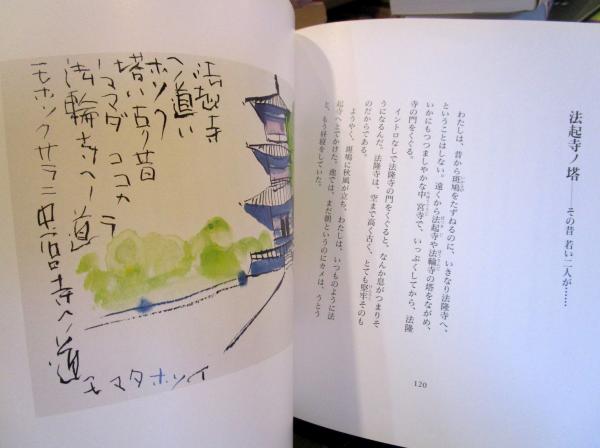 法起寺ノ塔――その昔 若い二人が……
わたしは、昔から斑鳩をたずねるのに、いきなり法隆寺へ、
ということはしない。遠くから法起寺や法輪寺の塔をながめ、
いかにもつつましやかな中宮寺で、いっぷくしてから、法隆
寺の門をくぐる。
イントロなしで法隆寺の門をくぐると、なんか息がつまりそ
うになるんだ。法隆寺は、空まで高く古く、とても堅牢そのも
のだからである。
ようやく、斑鳩に秋風が立ち、わたしは、いつものように法
起寺へとでかけた。池では、まだ朝というのにカメは、うとう
と、もう昼寝をしていた。
120
法起寺
ヘノ道ハ
ホソク
塔ハ古リ昔
ノママダ ココカラ
法輪寺ヘノ道
モホソクサラニ中宮寺ヘノ道
モマタホソイ